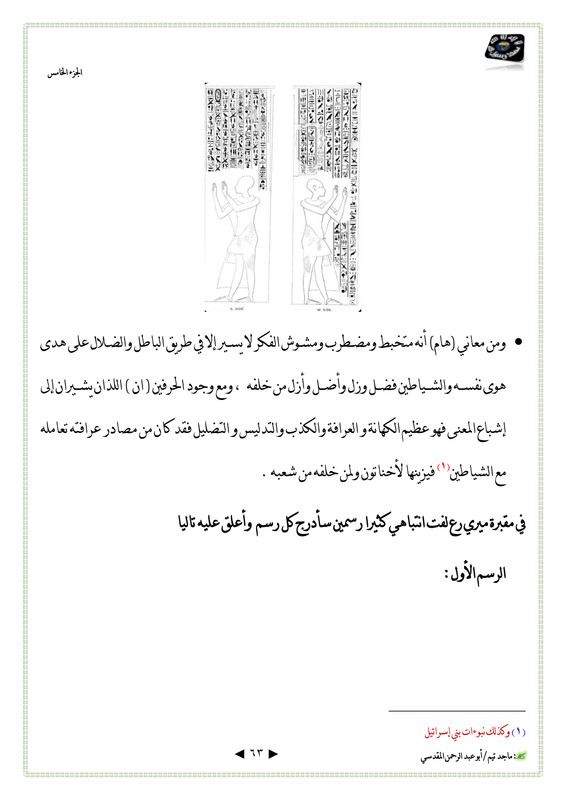 الجزء الخامس
ومن معاني (هام) أنه متخبط ومضطرب ومشوش الفكر لا يسير إلا في طريق الباطل والضلال على هدى
هوى نفسه والشياطين فضل وزل وأضل وأزل من خلفه ، ومع وجود الحرفين ( ان ) اللذان يشيران إلى
إشباع المعنى فهو عظيم الكهانة و العرافة والكذب والتدليس و التضليل فقد كان من مصادر عرافته تعامله
مع الشياطين(١) فيزينها لأخناتون ولمن خلفه من شعبه .
في مقبرة ميري رع لفت انتباهي كثيرا رسمين سأدرج كل رسم وأعلق عليه تاليا
الرسم الأول :
(١) وكذلك نبوءات بني إسرائيل
: ماجد تيم / أبو عبد الرحمن المقدسي
٦٣